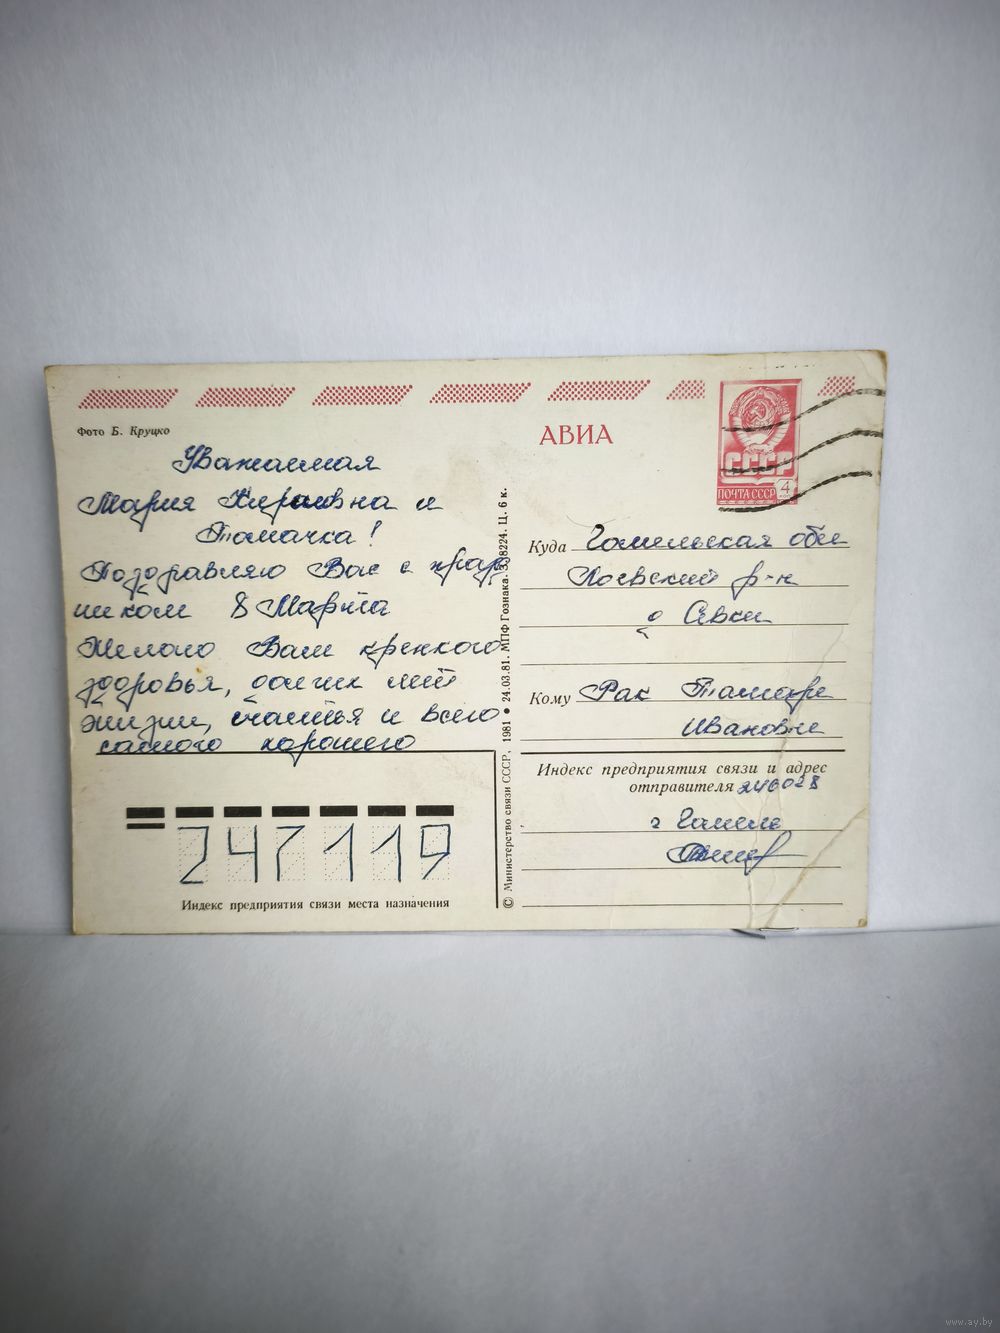 АВИА
Фото Б. Круцко
Уважаемая
Мария и
Томачка!
Поздравляю Вас с празд
ником 8 Марта
Желаю Вам крепкого
здоровья, долгих лет
жизни, счастья и всего
самого хорошего
СССР
ПОЧТА СССР 4
Куда Гомельская обл
Лоевский р-н
д Севки
Кому Рак Тамаре
Ивановне
Индекс предприятия связи и адрес
отправителя 246028
г Гомель
247119
Индекс предприятия связи места назначения
© Министерство связи СССР, 1981 • 24.03.81. МПФ Гознака. 338224. Ц. 6 к.
www.ay.by